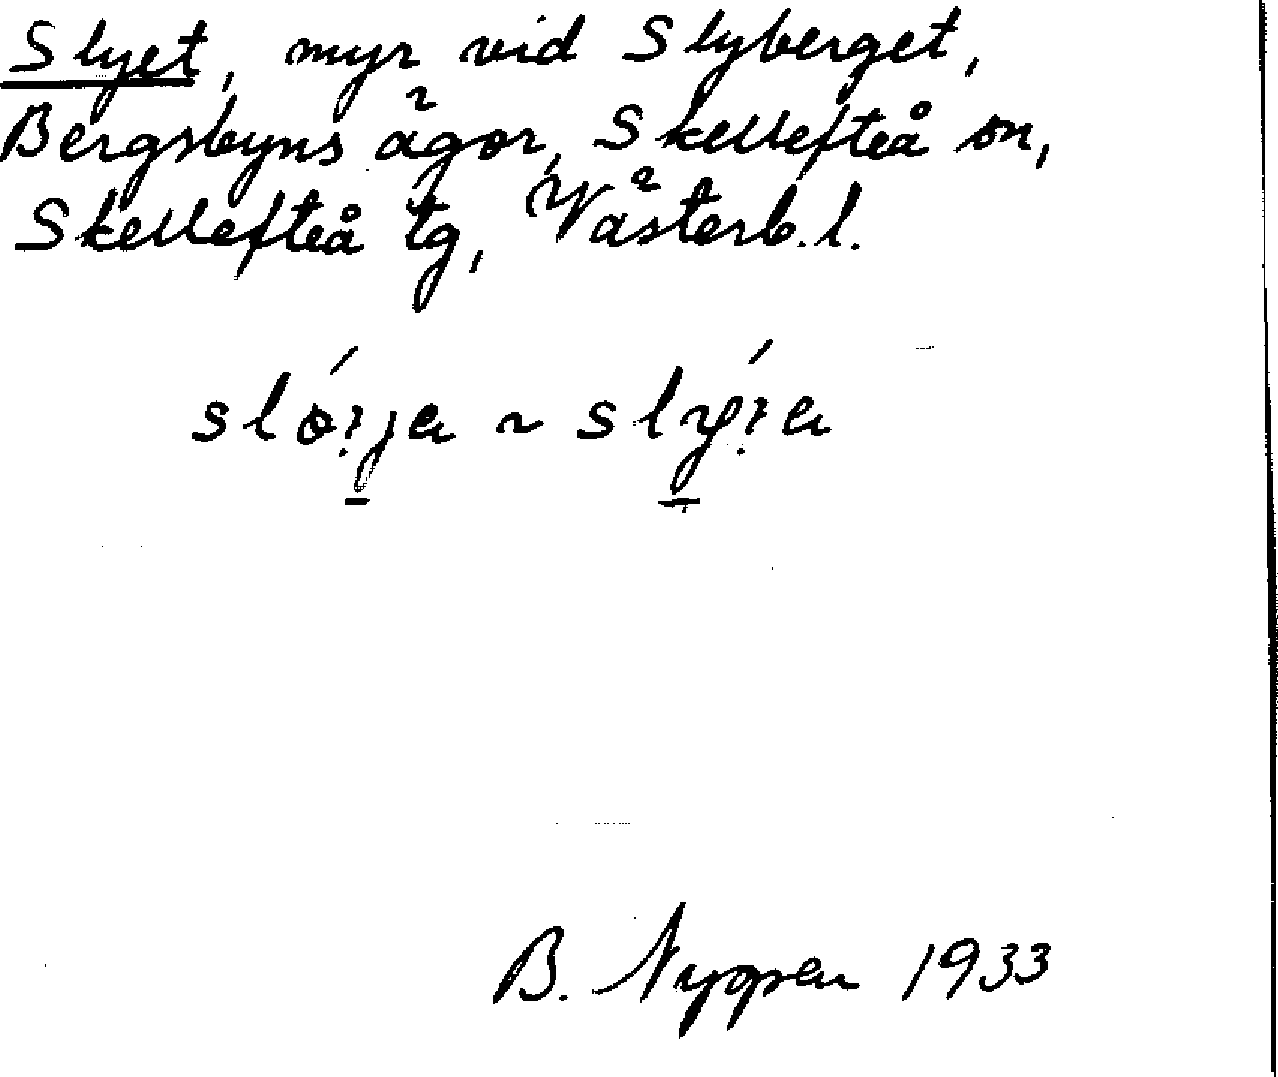 Slyet, myr vid Slyberget,
Bergsbyns ägor, Skellefteå sn,
Skellefteå tg, Västerb. l.
B. Nygren 1933